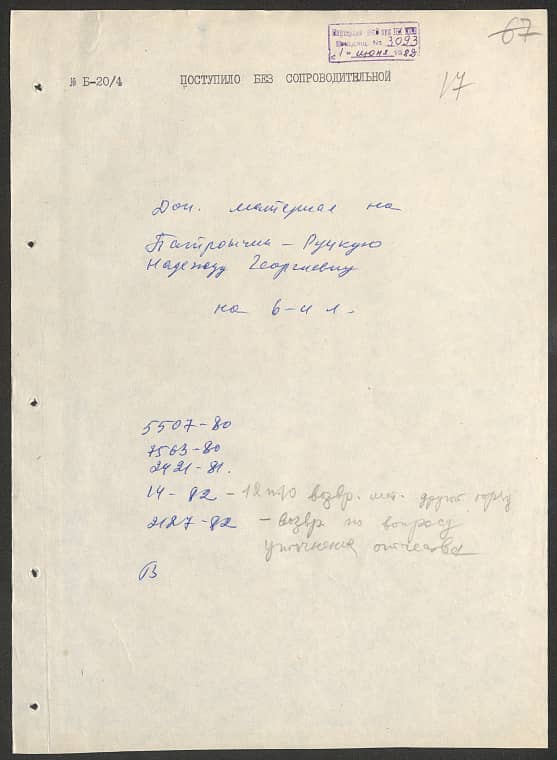 67
Входящ. № 3093
"1" июня 1982
№ Б-20/4 ПОСТУПИЛО БЕЗ СОПРОВОДИТЕЛЬНОЙ
17
Доп. материал на
Надежду Георгиевну
на 6-и л.
5507-80
7563-80
2421-81.
14-82 - возвр. другой
2127-82 - возвр по вопросу
уточнения отчества
В